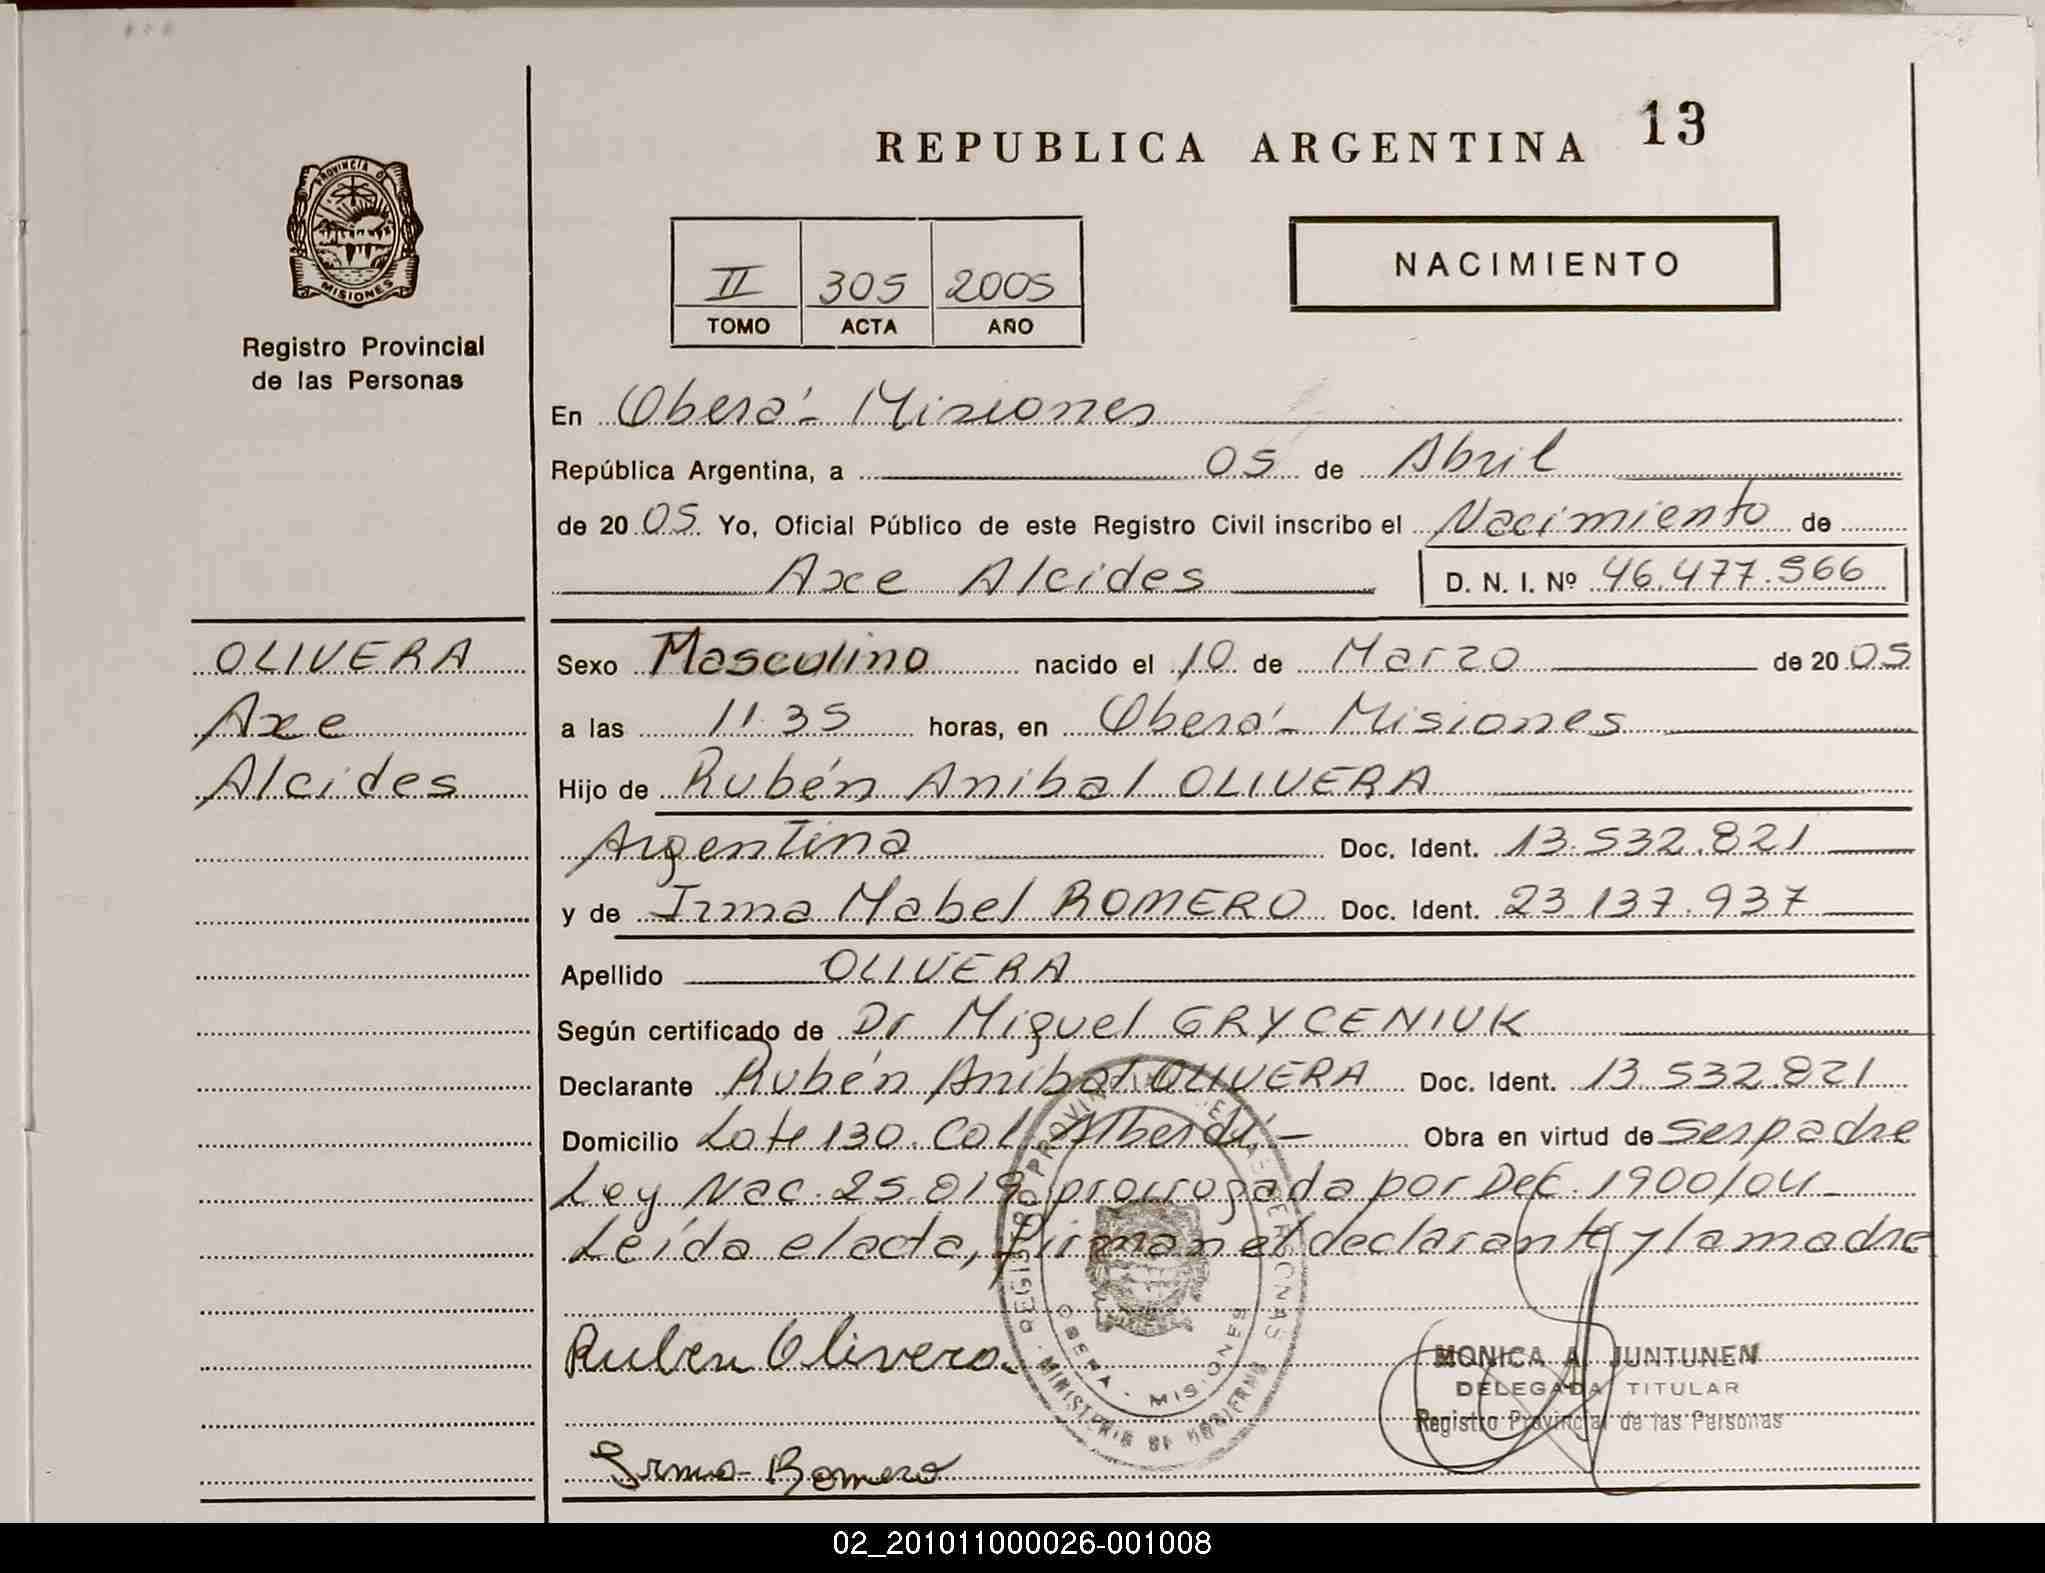 REPUBLICA ARGENTINA 13
PROVINCIA D MISIONES
Registro Provincial
de las Personas
II 305 2005
TOMO ACTA AÑO
NACIMIENTO
En Oberá - Misiones
República Argentina, a 05 de Abril
de 20 05 Yo, Oficial Público de este Registro Civil inscribo el Nacimiento de
Axe Alcides D. N. I. Nº 46.477.566
OLIVERA
Axe
Alcides
Sexo Masculino nacido el 10 de Marzo de 20 05
a las 11.35 horas, en Oberá - Misiones
Hijo de Rubén Anibal OLIVERA
Argentina Doc. Ident. 13.532.821
y de Irma Mabel ROMERO Doc. Ident. 23.137.937
Apellido OLIVERA
Según certificado de Dr Miguel GRYCENIUK
Declarante Rubén Anibal OLIVERA Doc. Ident. 13.532.821
Domicilio Lote 130. Col. Alberdi - Obra en virtud de ser padre
Ley Nac. 25.819 prorrogada por Dec. 1900/04 -
Leída el acta, firman el declarante y la madre
Ruben Olivera
Irma Romero
REGISTRO PROVINCIAL DE LAS PERSONAS
OBERA - MISIONES
MINISTERIO DE GOBIERNO
MONICA A. JUNTUNEN
DELEGADA TITULAR
Registro Provincial de las Personas
02_201011000026-001008